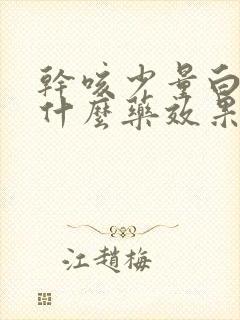 幹咳少量白
什麼藥效果
江趙梅